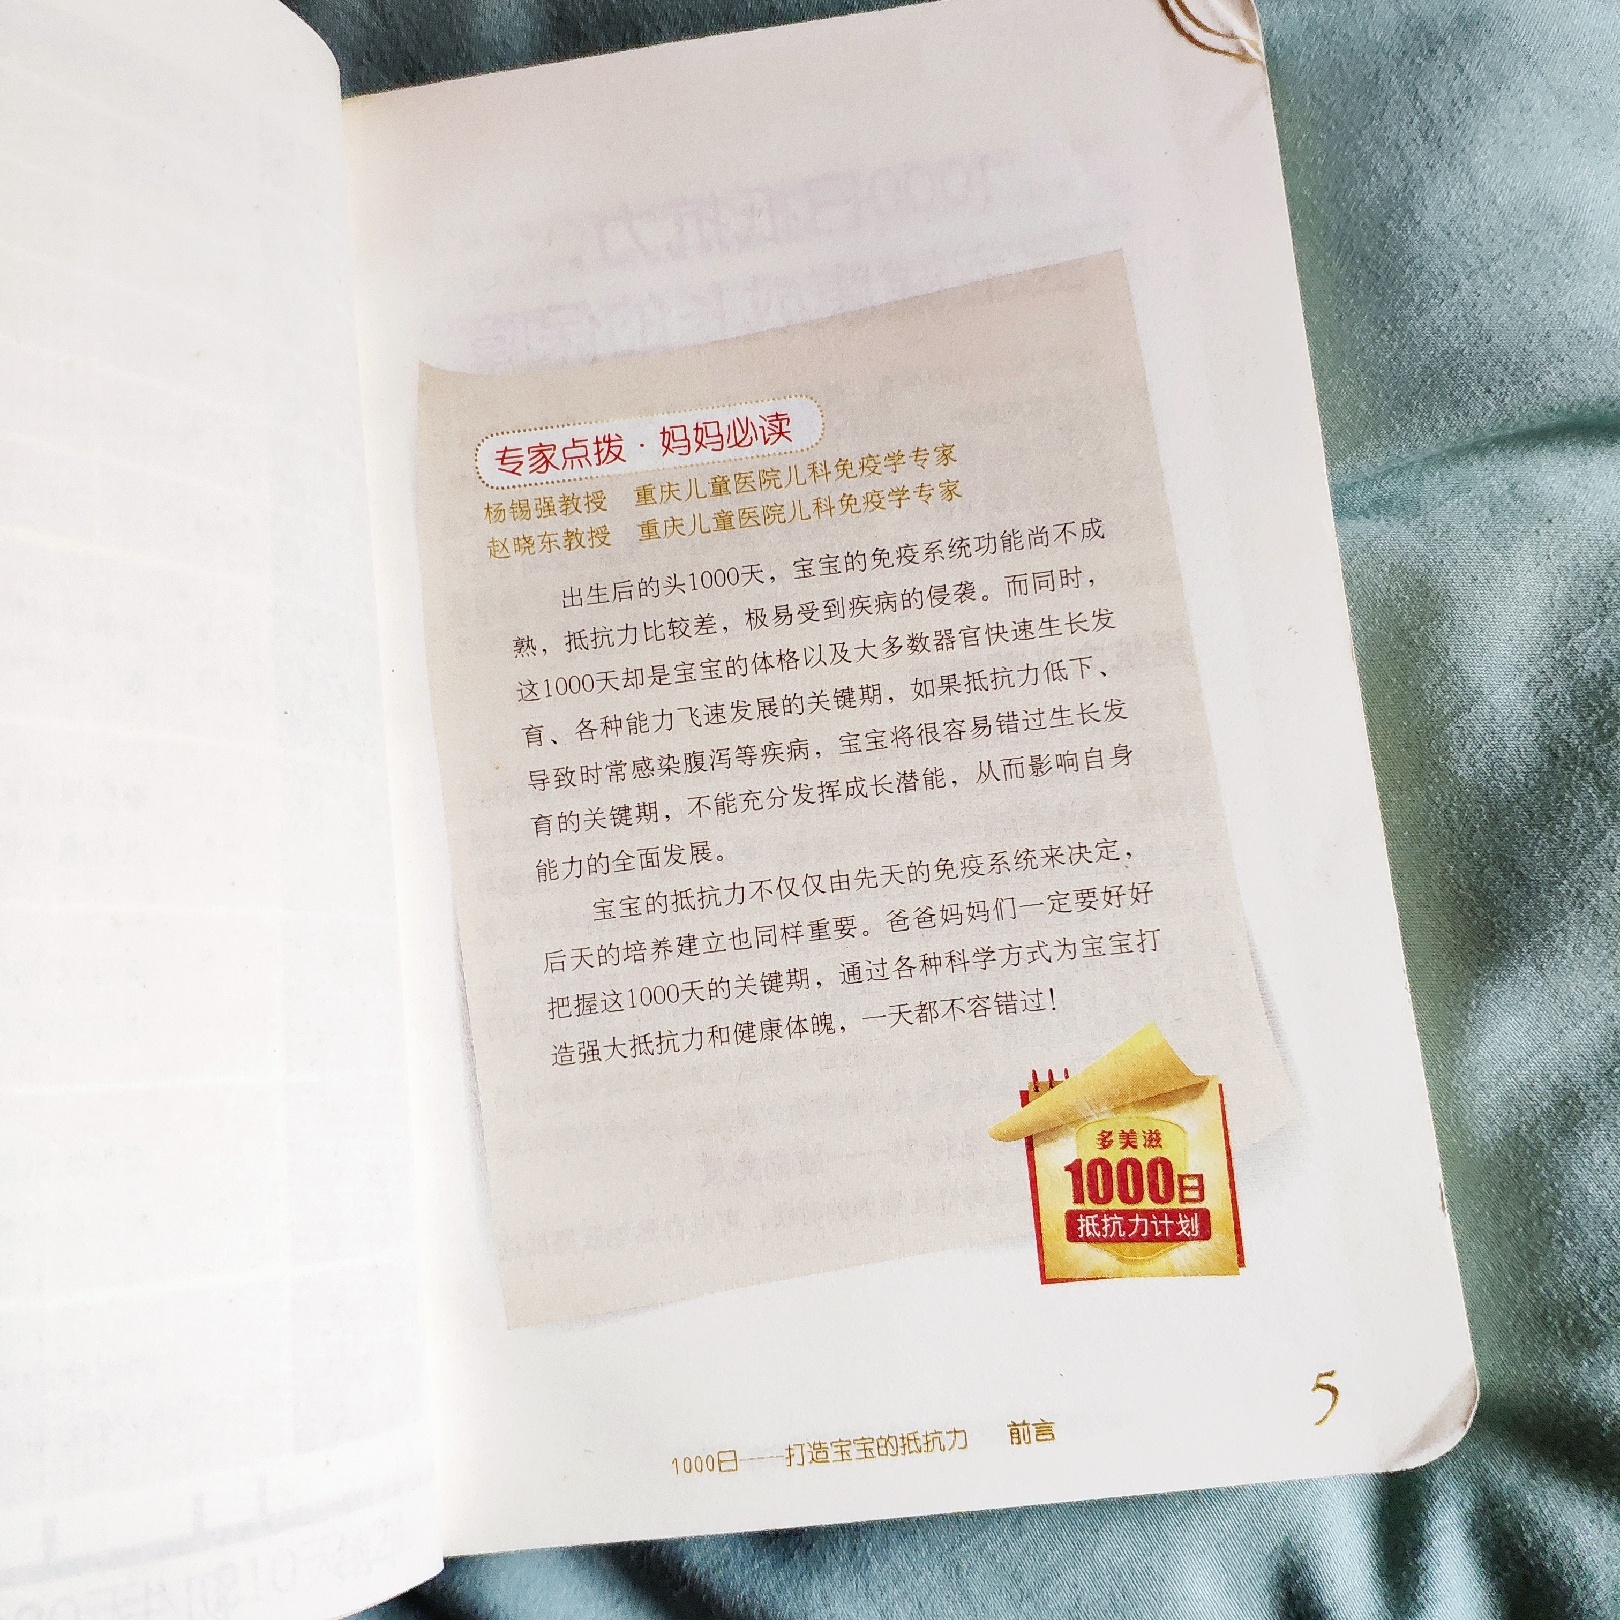 专家点拨·妈妈必读
杨锡强教授 重庆儿童医院儿科免疫学专家
赵晓东教授 重庆儿童医院儿科免疫学专家
出生后的头1000天，宝宝的免疫系统功能尚不成
熟，抵抗力比较差，极易受到疾病的侵袭。而同时，
这1000天却是宝宝的体格以及大多数器官快速生长发
育、各种能力飞速发展的关键期，如果抵抗力低下、
导致时常感染腹泻等疾病，宝宝将很容易错过生长发
育的关键期，不能充分发挥成长潜能，从而影响自身
能力的全面发展。
宝宝的抵抗力不仅仅由先天的免疫系统来决定，
后天的培养建立也同样重要。爸爸妈妈们一定要好好
把握这1000天的关键期，通过各种科学方式为宝宝打
造强大抵抗力和健康体魄，一天都不容错过！
多美滋
1000日
抵抗力计划
5
1000日——打造宝宝的抵抗力 前言